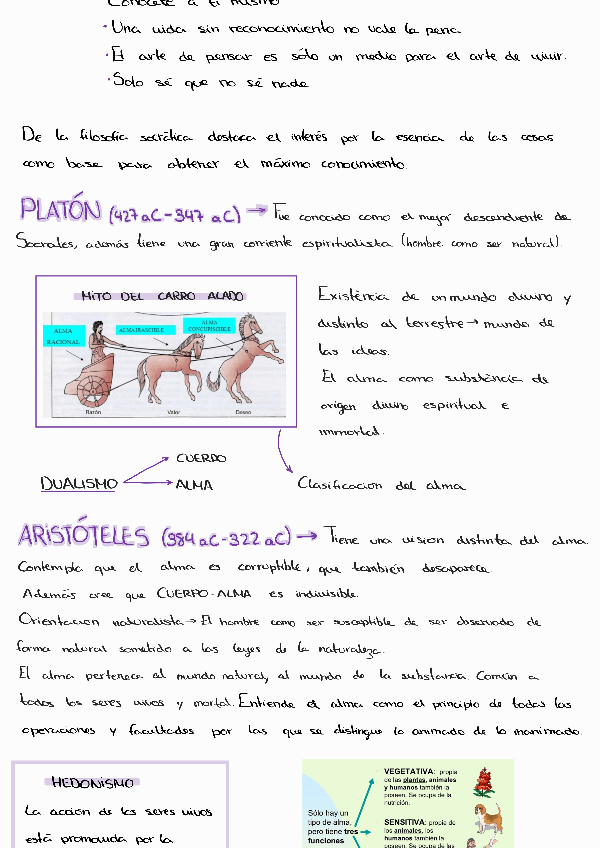 Conócete a ti mismo
· Una vida sin reconocimiento no vale la pena
· El arte de pensar es sólo un medio para el arte de vivir.
· Solo sé que no sé nada
De la filosofía socrática destaca el interés por la esencia de las cosas
como base para obtener el máximo conocimiento.
PLATÓN (427 aC-347 aC) → Fue conocido como el mejor descendiente de
Socrates, además tiene una gran corriente espiritualista (hombre como ser natural).
MITO DEL CARRO ALADO
ALMA RACIONAL
ALMA IRASCIBLE
ALMA CONCUPISCIBLE
Razón Valor Deseo
Existéncia de un mundo divino y
distinto al terrestre → mundo de
las ideas.
El alma como substància de
origen divino espiritual e
inmortal.
DUALISMO
CUERPO
ALMA
Clasificación del alma
ARISTÓTELES (384 aC-322 aC) → Tiene una vision distinta del alma.
Contempla que el alma es corruptible, que también desaparece.
Además cree que CUERPO-ALMA es indivisible.
Orientacion naturalista → El hombre como ser susceptible de ser observado de
forma natural sometido a las leyes de la naturaleza.
El alma pertenece al mundo natural, al mundo de la substancia. Común a
todos los seres vivos y mortal. Entiende el alma como el principio de todas las
operaciones y facultades por las que se distingue lo animado de lo inanimado.
HEDONISMO
La acción de los seres vivos
está promovida por la
Sólo hay un
tipo de alma,
pero tiene tres
funciones
VEGETATIVA: propia
de las plantas, animales
y humanos también la
poseen. Se ocupa de la
nutrición.
SENSITIVA: propia de
los animales, los
humanos también la
poseen. Se ocupa de las